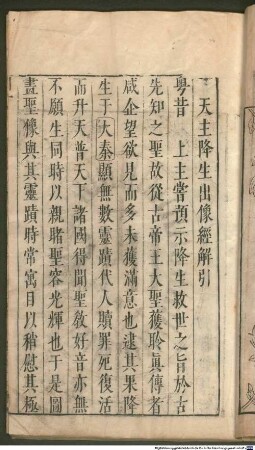 天主降生出像經解引
粵昔 上主嘗預示降生救世之旨於古
先知之聖故從古帝王大聖獲聆眞傳者
咸企望欲見而多未獲滿意也逮其果降
生于大秦顯無數靈蹟代人贖罪死復活
而升天普天下諸國得聞聖敎好音亦無
不願生同時以親睹聖容光輝也于是圖
畫聖像與其靈蹟時常寓目以稍慰其極